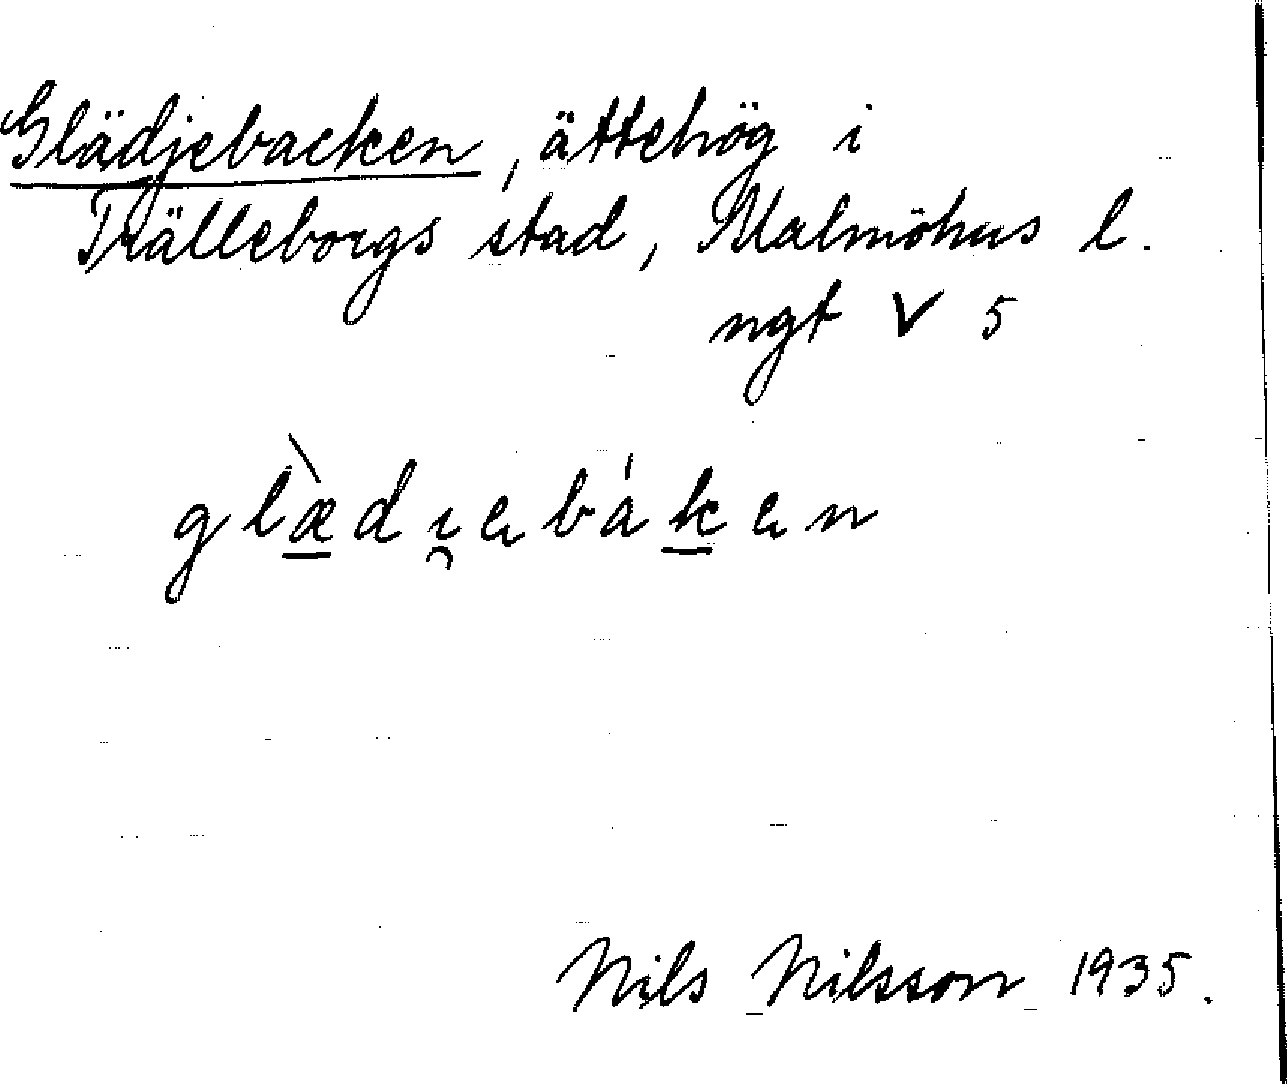 Glädjebacken, ättehög i
Trälleborgs stad, Malmöhus l.
ngt V 5
glæ̀di̯ebáken
Nils Nilsson 1935.